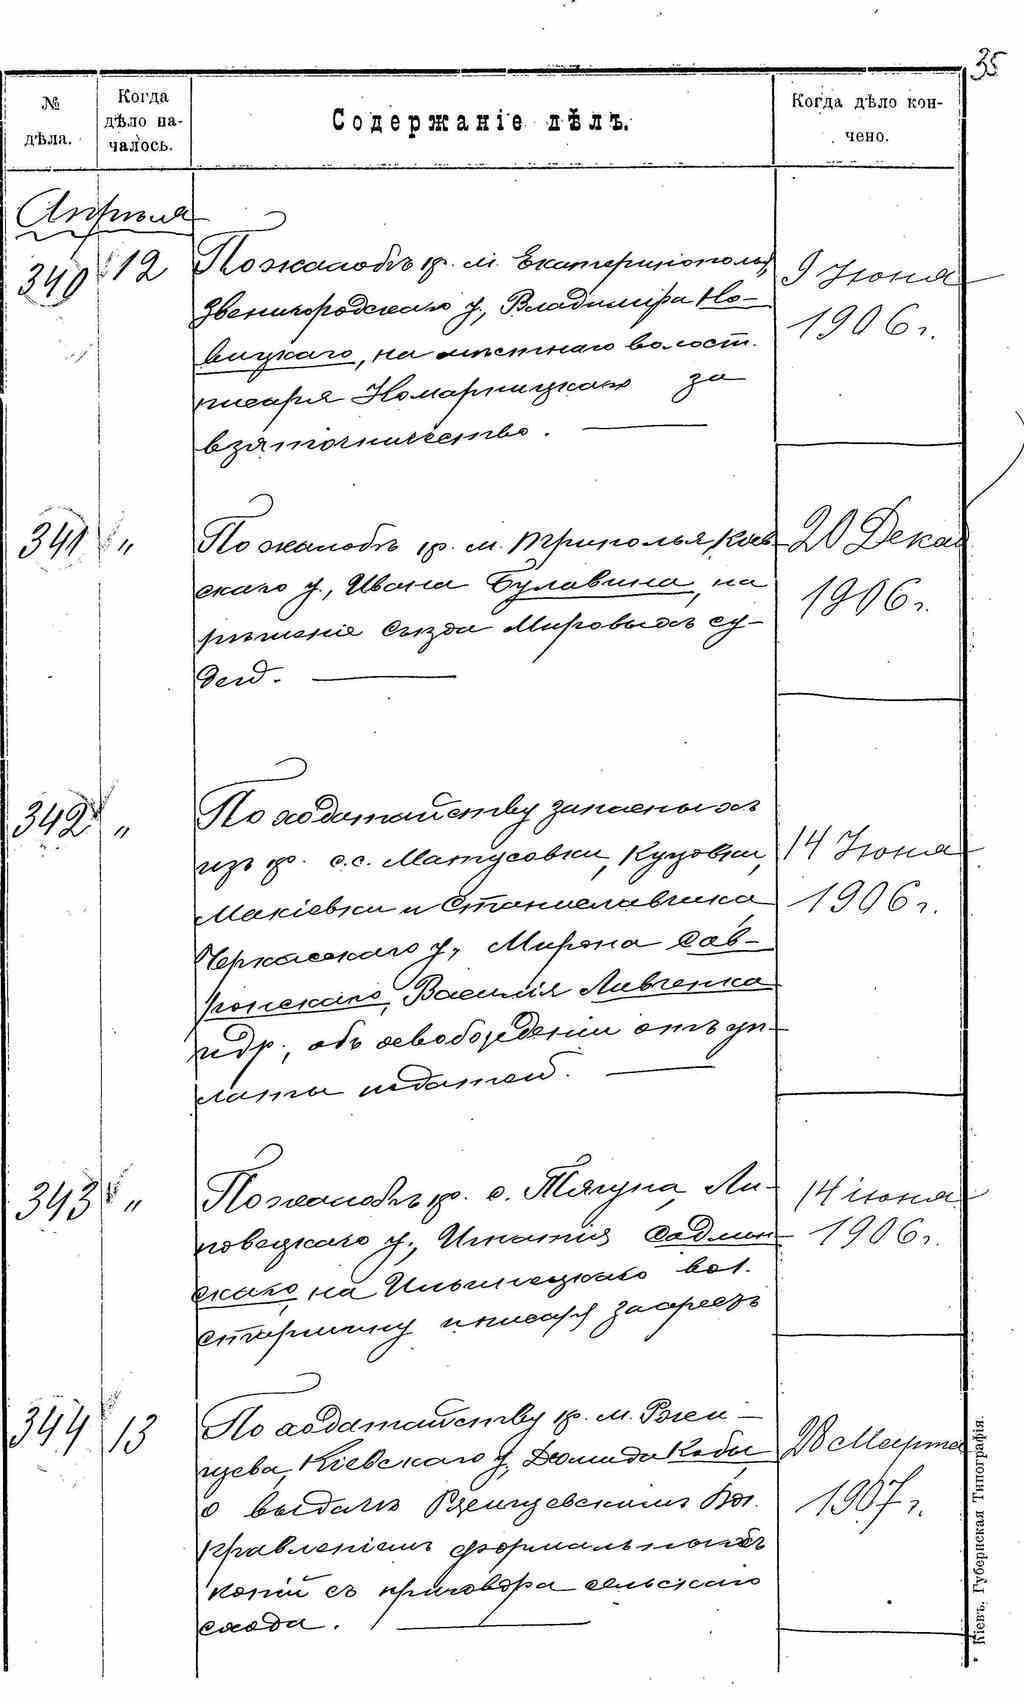 35
№ дѣла.
Когда дѣло на-
чалось.
Содержаніе дѣлъ.
Когда дѣло кон-
чено.
Апрѣля
340 12 По жалобѣ кр. м. Екатеринополья,
Звенигородскаго у., Владиміра Но-
вицкаго, на мѣстнаго волост.
писаря Комарницкаго за
взяточничество.
9 Іюня
1906 г.
341 " По жалобѣ кр. м. Триполья, Кіев-
скаго у., Ивана Булавина, на
рѣшеніе Съѣзда Мировыхъ Су-
дей.
20 Декаб
1906 г.
342 " По ходатайству запасныхъ
изъ кр. с.с. Матусовки, Куцовки,
Макіевки и Станиславчика,
Черкасскаго у., Мирона Сав-
ронскаго, Василія Ливченка
и др., объ освобожденіи отъ уп-
латы податей.
14 Іюня
1906 г.
343 " По жалобѣ кр. с. Тягуна, Ли-
повецкаго у., Игнатія
скаго, на Ильинецкаго вол.
старшину и писаря за арестъ
14 іюня
1906 г.
344 13 По ходатайству кр. м. Ржи-
щева, Кіевскаго у., Діомида Кобы,
о выдачѣ Ржищевскимъ Вол.
Правленіемъ формальной
копій съ приговора сельскаго
схода.
28 Марта
1907 г.
Кіевъ. Губернская Типографія.